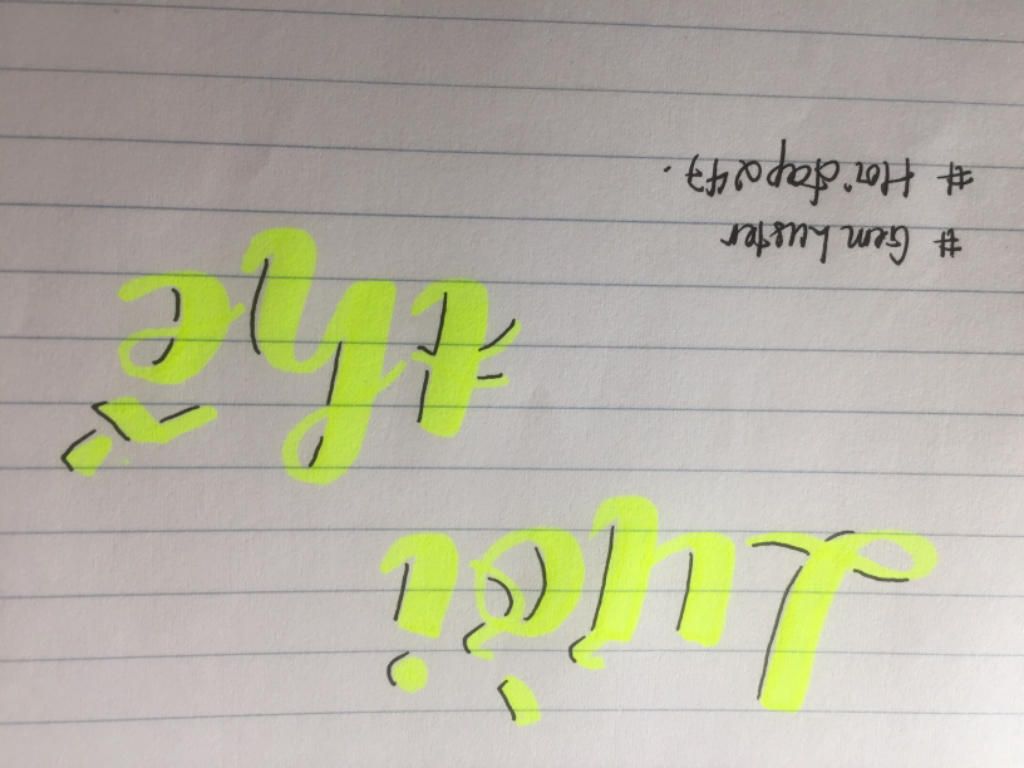 Lười
thế
# Gem Luster
# Hoidap247.